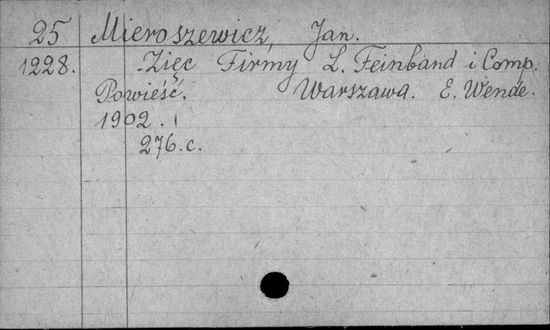 25 Mieroszewicz, Jan.
1228. Zięć Firmy L. Feinband i Comp.
Powieść. Warszawa. E. Wende.
1902.
276.c.